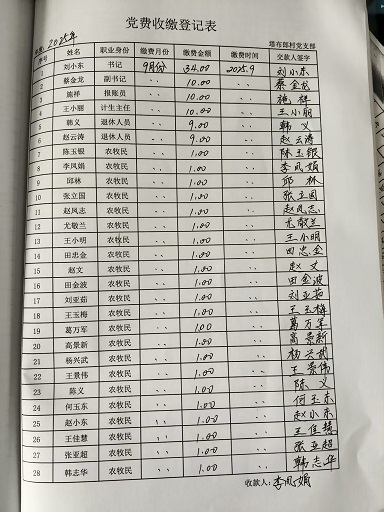 党费收缴登记表
年度：2025年 塔布郎村党支部
序号 姓名 职业身份 缴费月份 缴费金额 缴费时间 交款人签字
1 刘小东 书记 9月份 34.00 2025.9 刘小东
2 蔡金龙 副书记 〃 10.00 〃 蔡金龙
3 施祥 报账员 〃 10.00 〃 施祥
4 王小丽 计生主任 〃 10.00 〃 王小丽
5 韩义 退休人员 〃 9.00 〃 韩义
6 赵云涛 退休人员 〃 9.00 〃 赵云涛
7 陈玉银 农牧民 〃 1.00 〃 陈玉银
8 李凤娟 农牧民 〃 1.00 〃 李凤娟
9 邱林 农牧民 〃 1.00 〃 邱林
10 张立国 农牧民 〃 1.00 〃 张立国
11 赵凤志 农牧民 〃 1.00 〃 赵凤志
12 尤敬兰 农牧民 〃 1.00 〃 尤敬兰
13 王小明 农牧民 〃 1.00 〃 王小明
14 田忠金 农牧民 〃 1.00 〃 田忠金
15 赵文 农牧民 〃 1.00 〃 赵文
16 田金波 农牧民 〃 1.00 〃 田金波
17 刘亚茹 农牧民 〃 1.00 〃 刘亚茹
18 王玉梅 农牧民 〃 1.00 〃 王玉梅
19 葛万军 农牧民 〃 1.00 〃 葛万军
20 高景新 农牧民 〃 1.00 〃 高景新
21 杨兴武 农牧民 〃 1.00 〃 杨兴武
22 王景伟 农牧民 〃 1.00 〃 王景伟
23 陈义 农牧民 〃 1.00 〃 陈义
24 何玉东 农牧民 〃 1.00 〃 何玉东
25 赵小东 农牧民 〃 1.00 〃 赵小东
26 王佳慧 农牧民 〃 1.00 〃 王佳慧
27 张亚超 农牧民 〃 1.00 〃 张亚超
28 韩志华 农牧民 〃 1.00 〃 韩志华
收款人：李凤娟